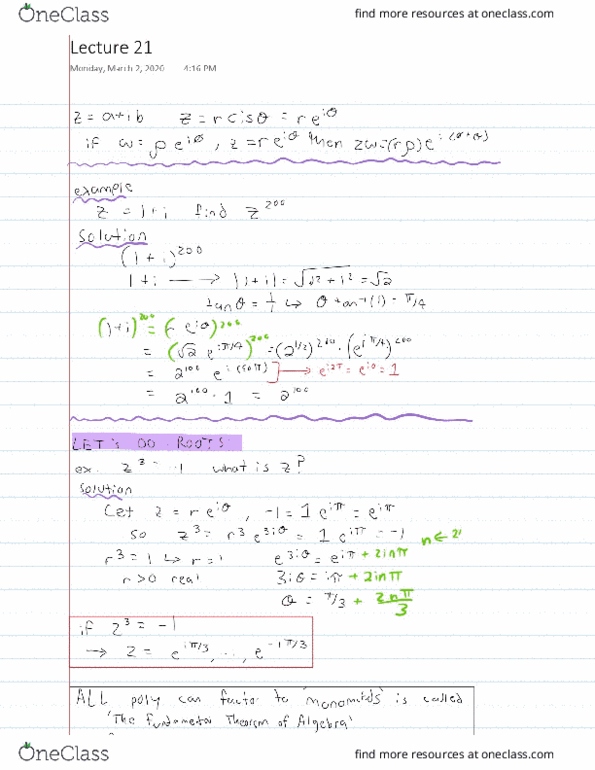 OneClass
find more resources at oneclass.com
Lecture 21
Monday, March 2, 2020 4:16 PM
z = a+ib z = r cisθ = r e^{iθ}
if ω = ρ e^{iφ}, z = r e^{iθ} then zω = (rρ) e^{i(θ+φ)}
example
z = 1+i find z^{200}
Solution
(1+i)^{200}
1+i → |1+i| = √(1²+1²) = √2
tan θ = 1/1 ↪ θ tan⁻¹(1) = π/4
(1+i)^{200} = (r e^{iθ})^{200}
= (√2 e^{iπ/4})^{200} = (2^{1/2})^{200} · (e^{iπ/4})^{200}
= 2^{100} e^{i(50π)} → e^{i2π} = e^{i0} = 1
= 2^{100} · 1 = 2^{100}
LET'S DO ROOTS
ex. z³ = -1 what is z?
Solution
Let z = r e^{iθ}, -1 = 1 e^{iπ} = e^{iπ}
so z³ = r³ e^{3iθ} = 1 e^{iπ} = -1
r³ = 1 ↪ r = 1 e^{3iθ} = e^{iπ + 2inπ}
r > 0 real 3iθ = iπ + 2inπ
θ = π/3 + 2nπ/3
if z³ = -1
→ z = e^{iπ/3}, ..., e^{-iπ/3}
ALL poly can factor to 'monomials' is called
'The Fundamental Theorem of Algebra'
OneClass
find more resources at oneclass.com